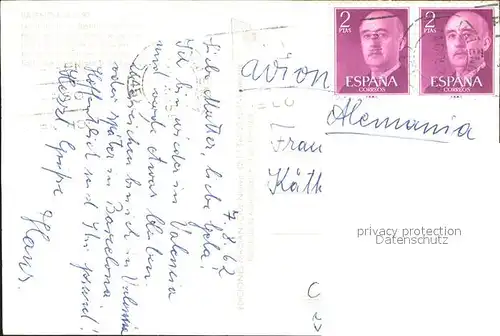 2
PTAS
ESPAÑA
CORREOS
2
PTAS
ESPAÑA
CORREOS
avion
Alemania
Frau
Käth
7.8.62
Liebe Mutter, liebe Gela!
Ich bin wieder in Valencia
und werde etwas bleiben.
bin ich in Valencia
oder später in Barcelona.
Hoffentlich seid Ihr gesund!
Herzl. Grüße
Hans.
privacy protection
Datenschutz